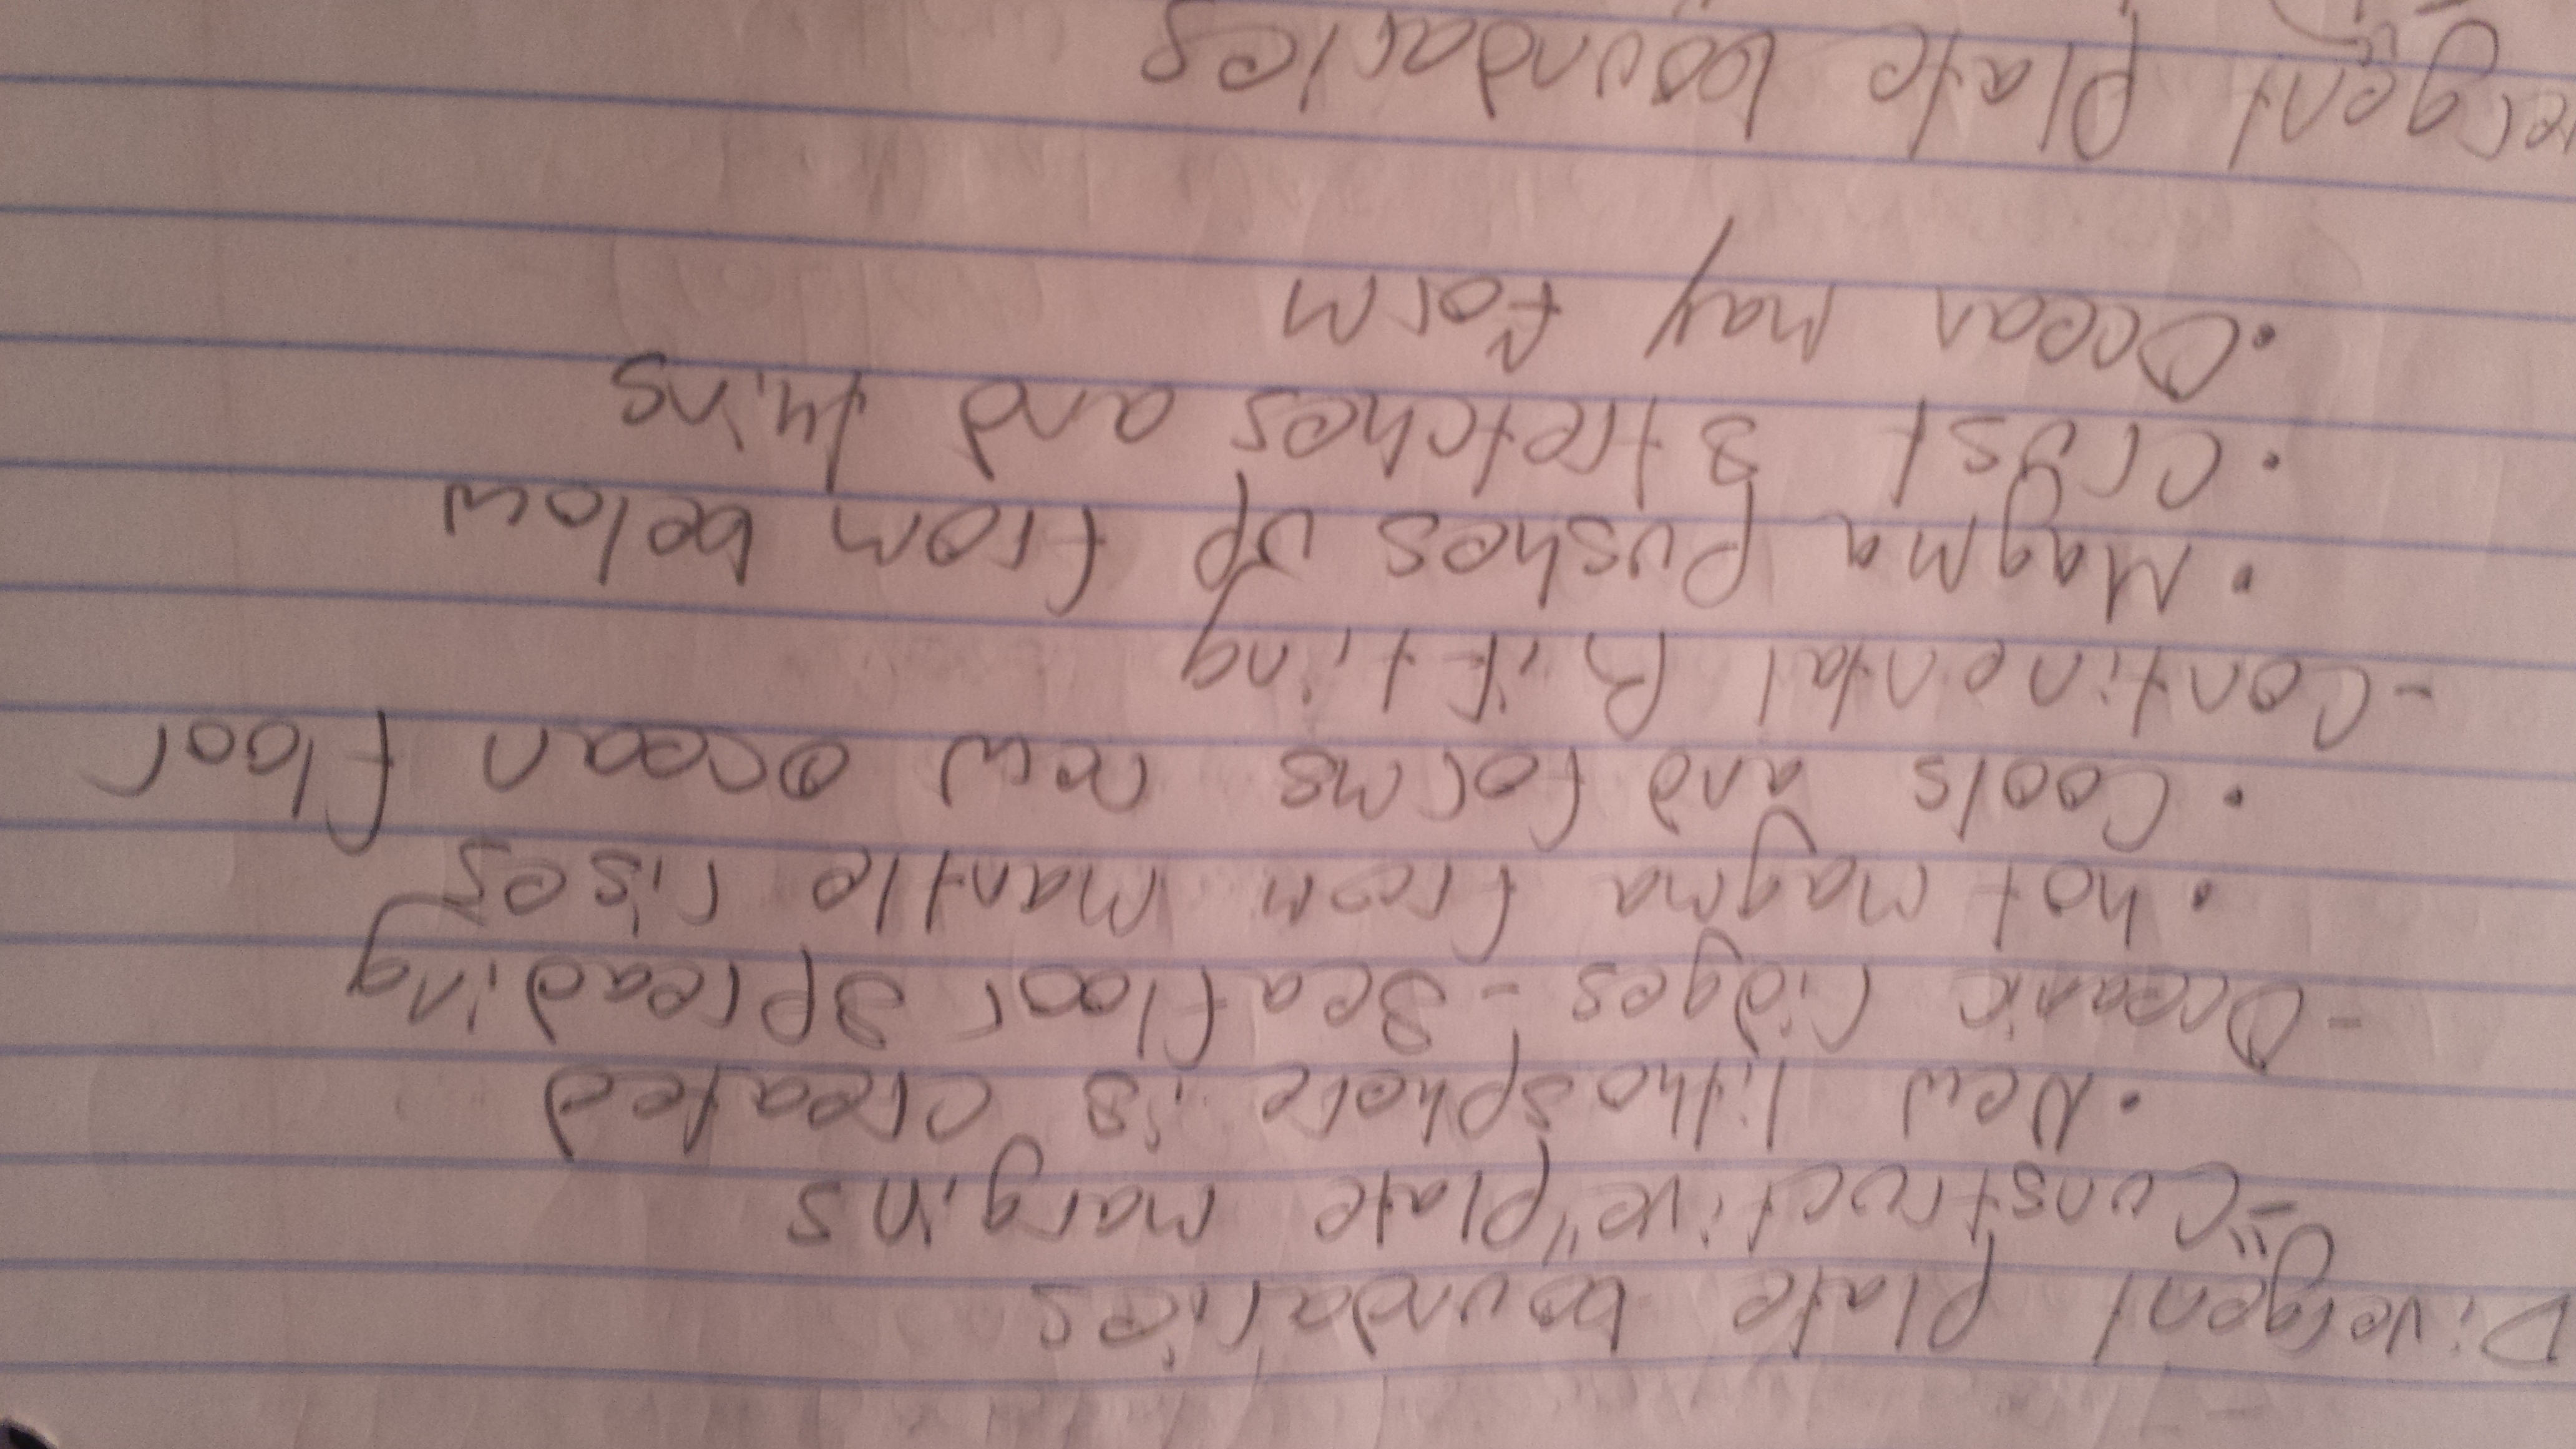 Divergent plate boundaries
- "Constructive" plate margins
• New lithosphere is created
- Oceanic ridges - seafloor spreading
• hot magma from mantle rises
• Cools and forms new ocean floor
- Continental Rifting
• Magma pushes up from below
• Crust stretches and thins
• Ocean may form
vergent plate boundaries